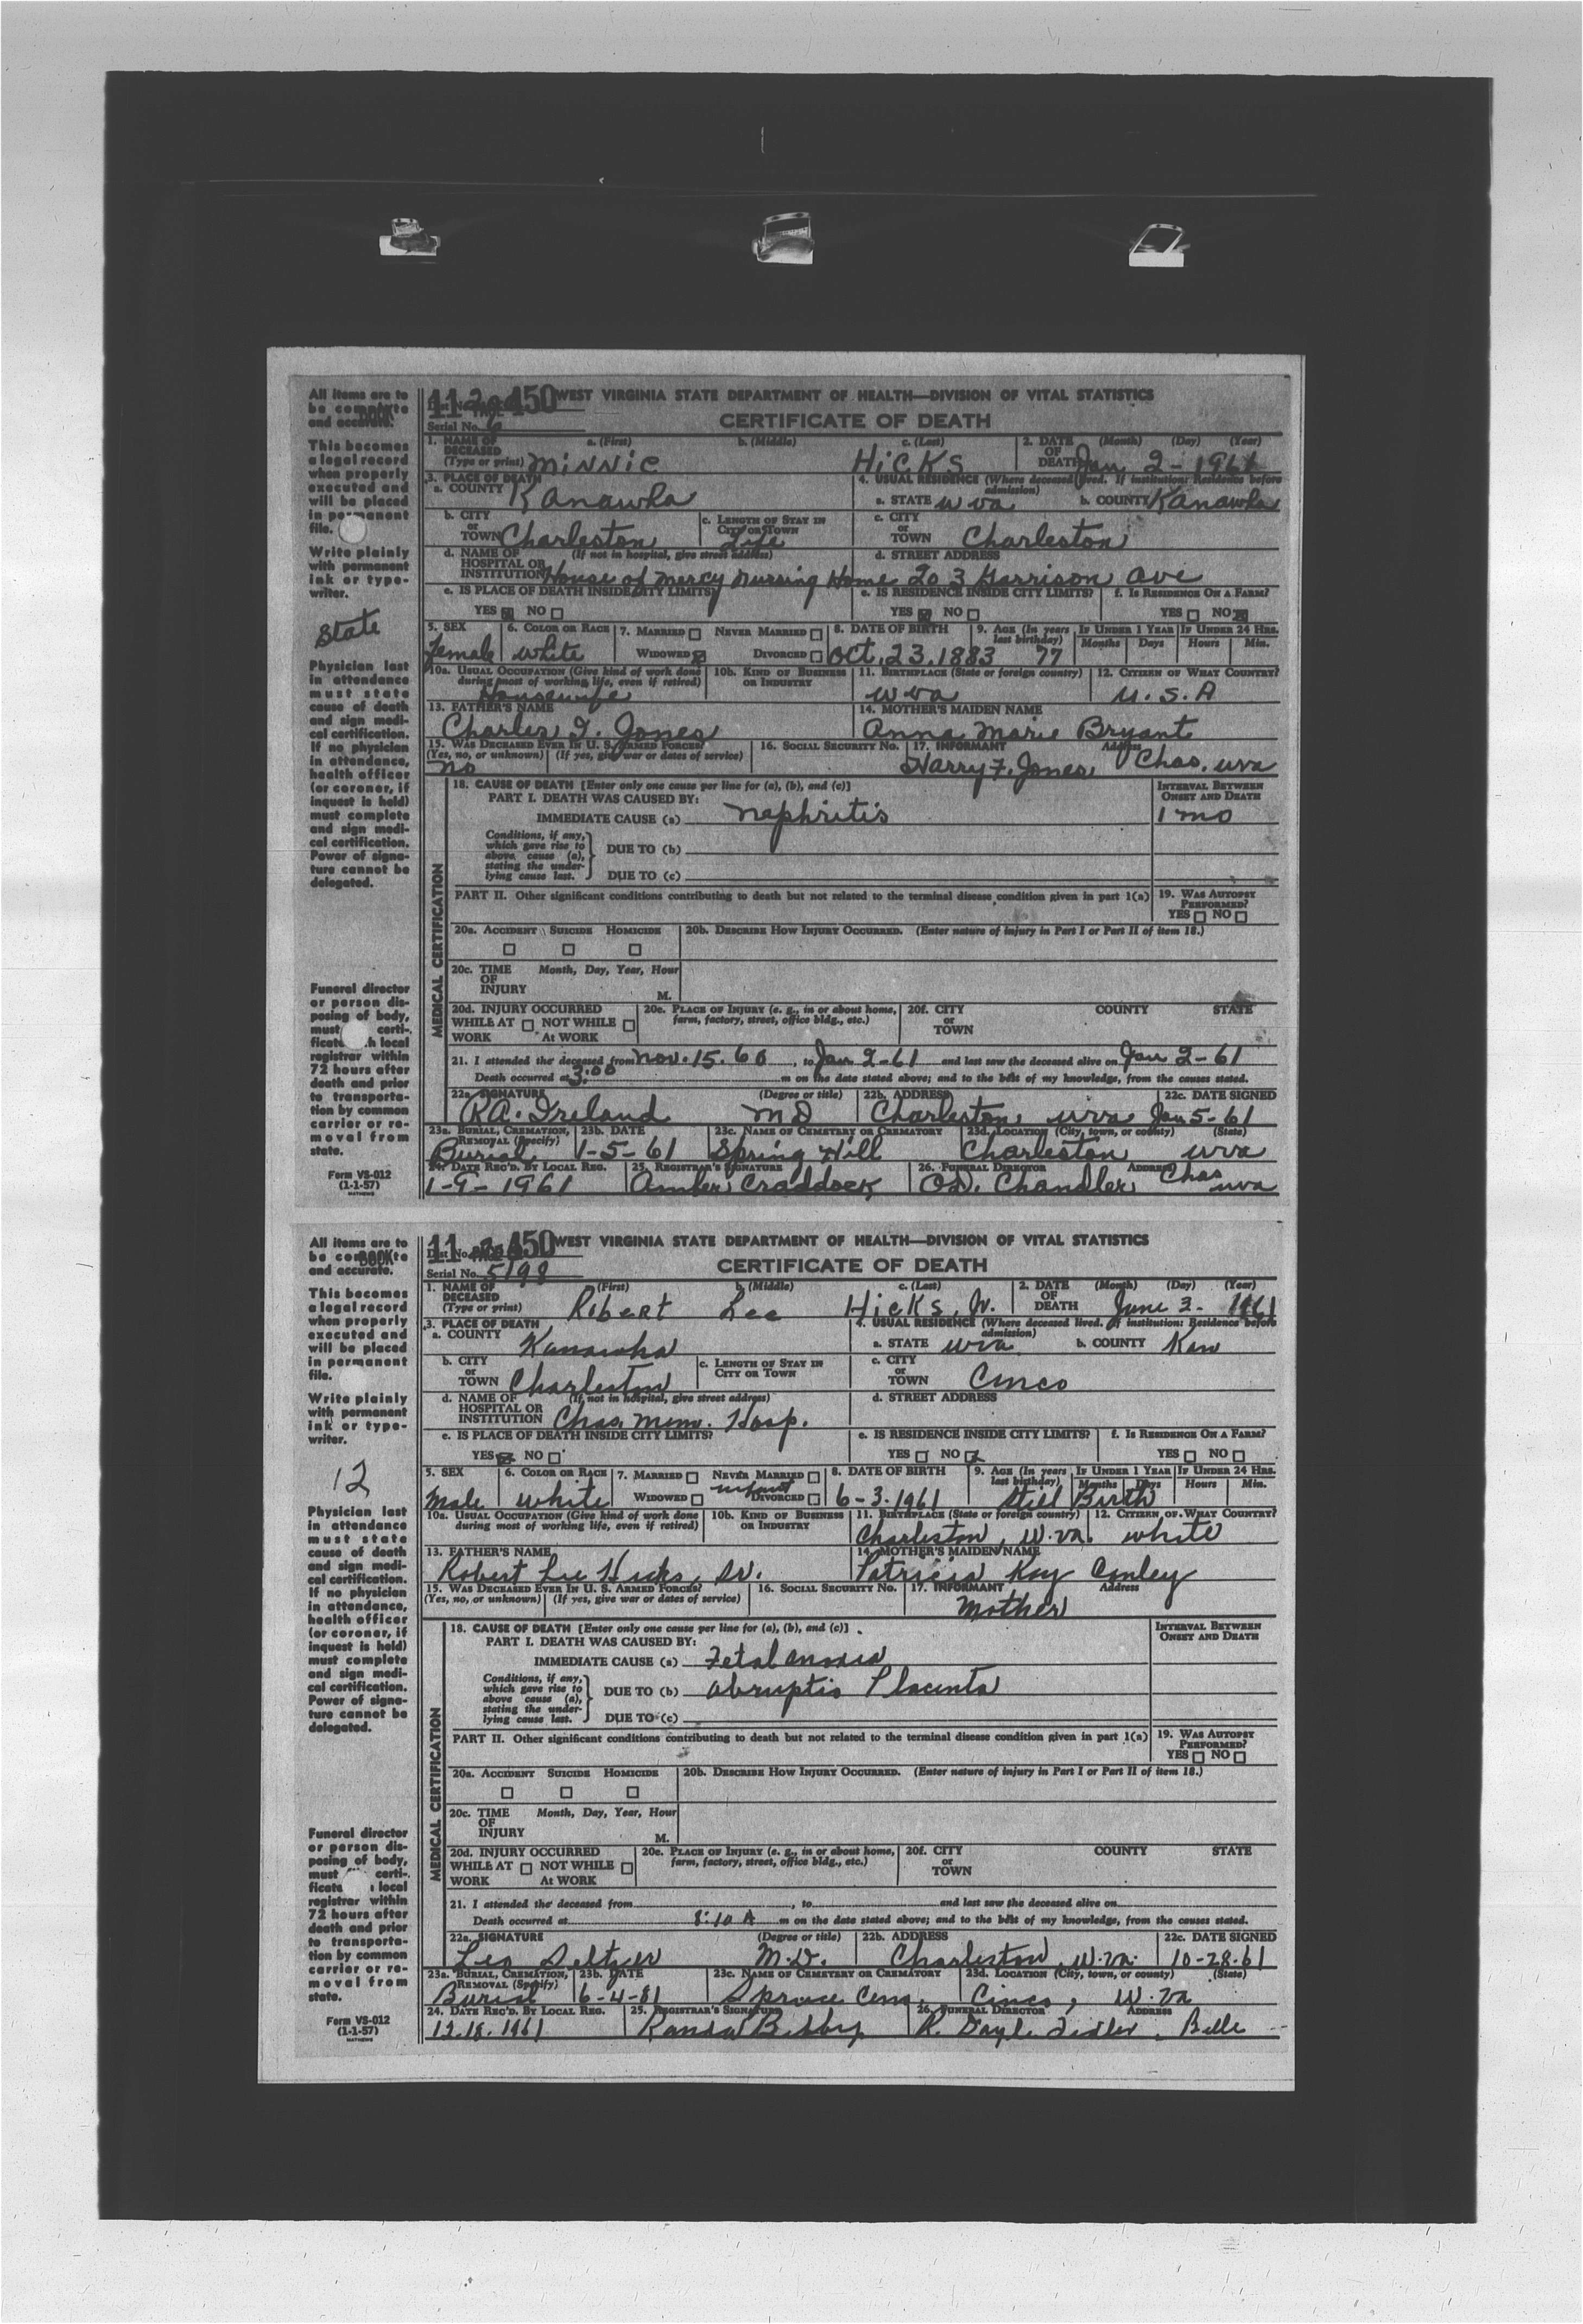 11 150 WEST VIRGINIA STATE DEPARTMENT OF HEALTH—DIVISION OF VITAL STATISTICS
Serial No. 6 CERTIFICATE OF DEATH
1. NAME OF DECEASED (Type or print) a. (First) Minnie b. (Middle) c. (Last) Hicks 2. DATE OF DEATH (Month) (Day) (Year) Jan 2 - 1961
3. PLACE OF DEATH a. COUNTY Kanawha 4. USUAL RESIDENCE (Where deceased lived. If institution: Residence before admission) a. STATE W va b. COUNTY Kanawha
b. CITY or TOWN Charleston c. LENGTH OF STAY IN CITY OR TOWN Life c. CITY or TOWN Charleston
d. NAME OF HOSPITAL OR INSTITUTION (If not in hospital, give street address) House of Mercy Nursing Home d. STREET ADDRESS 203 Garrison ave
e. IS PLACE OF DEATH INSIDE CITY LIMITS? YES NO e. IS RESIDENCE INSIDE CITY LIMITS? YES NO f. IS RESIDENCE ON A FARM? YES NO
5. SEX Female 6. COLOR OR RACE white 7. MARRIED NEVER MARRIED WIDOWED DIVORCED 8. DATE OF BIRTH Oct. 23. 1883 9. AGE (In years last birthday) 77 IF UNDER 1 YEAR Months Days IF UNDER 24 HRS. Hours Min.
10a. USUAL OCCUPATION (Give kind of work done during most of working life, even if retired) Housewife 10b. KIND OF BUSINESS OR INDUSTRY 11. BIRTHPLACE (State or foreign country) W va 12. CITIZEN OF WHAT COUNTRY? U.S.A
13. FATHER'S NAME Charles T. Jones 14. MOTHER'S MAIDEN NAME Anna Marie Bryant
15. WAS DECEASED EVER IN U. S. ARMED FORCES? (Yes, no, or unknown) (If yes, give war or dates of service) no 16. SOCIAL SECURITY NO. 17. INFORMANT Address Harry F. Jones Chas. wva
18. CAUSE OF DEATH [Enter only one cause per line for (a), (b), and (c)] INTERVAL BETWEEN ONSET AND DEATH
PART I. DEATH WAS CAUSED BY:
IMMEDIATE CAUSE (a) nephritis 1 mo
Conditions, if any, which gave rise to above cause (a), stating the underlying cause last. DUE TO (b)
DUE TO (c)
PART II. Other significant conditions contributing to death but not related to the terminal disease condition given in part 1(a) 19. WAS AUTOPSY PERFORMED? YES NO
20a. ACCIDENT SUICIDE HOMICIDE 20b. DESCRIBE HOW INJURY OCCURRED. (Enter nature of injury in Part I or Part II of item 18.)
20c. TIME OF INJURY Month, Day, Year, Hour M.
20d. INJURY OCCURRED WHILE AT WORK NOT WHILE AT WORK 20e. PLACE OF INJURY (e. g., in or about home, farm, factory, street, office bldg., etc.) 20f. CITY or TOWN COUNTY STATE
21. I attended the deceased from Nov. 15. 60, to Jan 2-61 and last saw the deceased alive on Jan 2-61
Death occurred at 3:00 m on the date stated above; and to the best of my knowledge, from the causes stated.
22a. SIGNATURE R.A. Ireland (Degree or title) MD 22b. ADDRESS Charleston, wva 22c. DATE SIGNED Jan 5-61
23a. BURIAL, CREMATION, REMOVAL (Specify) Burial 23b. DATE 1-5-61 23c. NAME OF CEMETERY OR CREMATORY Spring Hill 23d. LOCATION (City, town, or county) (State) Charleston wva
24. DATE REC'D. BY LOCAL REG. 1-9-1961 25. REGISTRAR'S SIGNATURE Amber Craddock 26. FUNERAL DIRECTOR ADDRESS Chandler Chas wva
All items are to
be complete
and accurate.
This becomes
a legal record
when properly
executed and
will be placed
in permanent
file.
Write plainly
with permanent
ink or type-
writer.
State
Physician last
in attendance
must state
cause of death
and sign medi-
cal certification.
If no physician
in attendance,
health officer
(or coroner, if
inquest is held)
must complete
and sign medi-
cal certification.
Power of signa-
ture cannot be
delegated.
Funeral director
or person dis-
posing of body,
must certi-
ficate h local
registrar within
72 hours after
death and prior
to transporta-
tion by common
carrier or re-
moval from
state.
Form VS-012
(1-1-57)
MATHEWS
MEDICAL CERTIFICATION
11 150 WEST VIRGINIA STATE DEPARTMENT OF HEALTH—DIVISION OF VITAL STATISTICS
Serial No. 5198 CERTIFICATE OF DEATH
1. NAME OF DECEASED (Type or print) (First) Robert b. (Middle) Lee c. (Last) Hicks, Jr. 2. DATE OF DEATH (Month) (Day) (Year) June 3. 1961
3. PLACE OF DEATH a. COUNTY Kanawha 4. USUAL RESIDENCE (Where deceased lived. If institution: Residence before admission) a. STATE wva b. COUNTY Kan
b. CITY or TOWN Charleston c. LENGTH OF STAY IN CITY OR TOWN c. CITY or TOWN Cinco
d. NAME OF HOSPITAL OR INSTITUTION (If not in hospital, give street address) Chas. Mem. Hosp. d. STREET ADDRESS
e. IS PLACE OF DEATH INSIDE CITY LIMITS? YES NO e. IS RESIDENCE INSIDE CITY LIMITS? YES NO f. IS RESIDENCE ON A FARM? YES NO
5. SEX Male 6. COLOR OR RACE white 7. MARRIED NEVER MARRIED infant WIDOWED DIVORCED 8. DATE OF BIRTH 6-3.1961 9. AGE (In years last birthday) IF UNDER 1 YEAR Months Days IF UNDER 24 HRS. Hours Min. Still Birth
10a. USUAL OCCUPATION (Give kind of work done during most of working life, even if retired) 10b. KIND OF BUSINESS OR INDUSTRY 11. BIRTHPLACE (State or foreign country) Charleston, W.va. 12. CITIZEN OF WHAT COUNTRY? white
13. FATHER'S NAME Robert Lee Hicks, Sr. 14. MOTHER'S MAIDEN NAME Patricia Kay Conley
15. WAS DECEASED EVER IN U. S. ARMED FORCES? (Yes, no, or unknown) (If yes, give war or dates of service) 16. SOCIAL SECURITY NO. 17. INFORMANT Address Mother
18. CAUSE OF DEATH [Enter only one cause per line for (a), (b), and (c)] INTERVAL BETWEEN ONSET AND DEATH
PART I. DEATH WAS CAUSED BY:
IMMEDIATE CAUSE (a) Fetal anoxia
Conditions, if any, which gave rise to above cause (a), stating the underlying cause last. DUE TO (b) abruptio Placenta
DUE TO (c)
PART II. Other significant conditions contributing to death but not related to the terminal disease condition given in part 1(a) 19. WAS AUTOPSY PERFORMED? YES NO
20a. ACCIDENT SUICIDE HOMICIDE 20b. DESCRIBE HOW INJURY OCCURRED. (Enter nature of injury in Part I or Part II of item 18.)
20c. TIME OF INJURY Month, Day, Year, Hour M.
20d. INJURY OCCURRED WHILE AT WORK NOT WHILE AT WORK 20e. PLACE OF INJURY (e. g., in or about home, farm, factory, street, office bldg., etc.) 20f. CITY or TOWN COUNTY STATE
21. I attended the deceased from , to and last saw the deceased alive on
Death occurred at 8:10 A m on the date stated above; and to the best of my knowledge, from the causes stated.
22a. SIGNATURE Leo Seltzer (Degree or title) M.D. 22b. ADDRESS Charleston, W.va. 22c. DATE SIGNED 10-28-61
23a. BURIAL, CREMATION, REMOVAL (Specify) Burial 23b. DATE 6-4-61 23c. NAME OF CEMETERY OR CREMATORY Spruce Cem. 23d. LOCATION (City, town, or county) (State) Cinco, W.va
24. DATE REC'D. BY LOCAL REG. 12.18.1961 25. REGISTRAR'S SIGNATURE 26. FUNERAL DIRECTOR ADDRESS R. Gayle Fidler, Belle
All items are to
be complete
and accurate.
This becomes
a legal record
when properly
executed and
will be placed
in permanent
file.
Write plainly
with permanent
ink or type-
writer.
12
Physician last
in attendance
must state
cause of death
and sign medi-
cal certification.
If no physician
in attendance,
health officer
(or coroner, if
inquest is held)
must complete
and sign medi-
cal certification.
Power of signa-
ture cannot be
delegated.
Funeral director
or person dis-
posing of body,
must certi-
ficate local
registrar within
72 hours after
death and prior
to transporta-
tion by common
carrier or re-
moval from
state.
Form VS-012
(1-1-57)
MATHEWS
MEDICAL CERTIFICATION